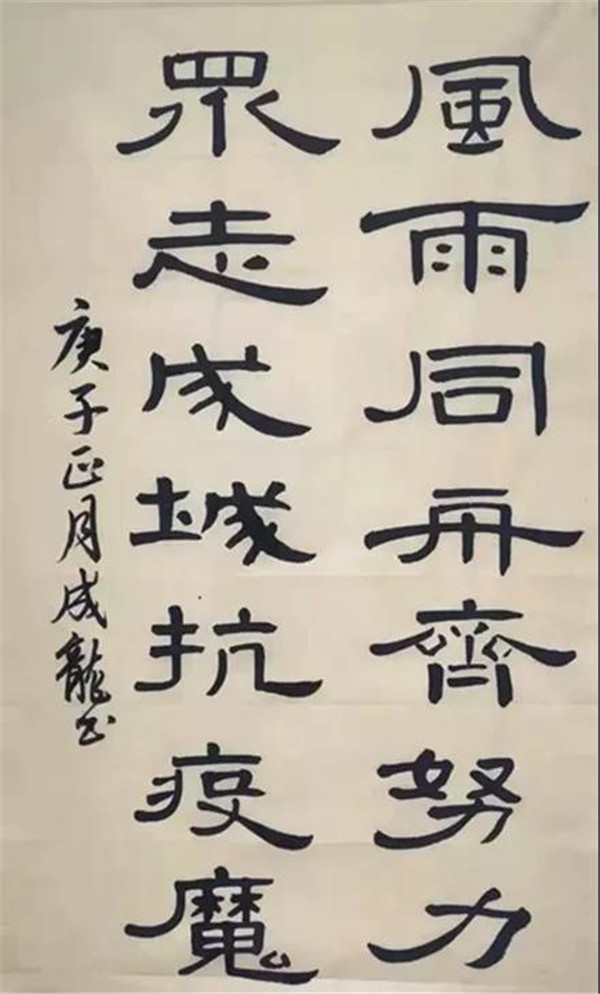 風雨同舟齊努力
眾志成城抗疫魔
庚子正月成龍书